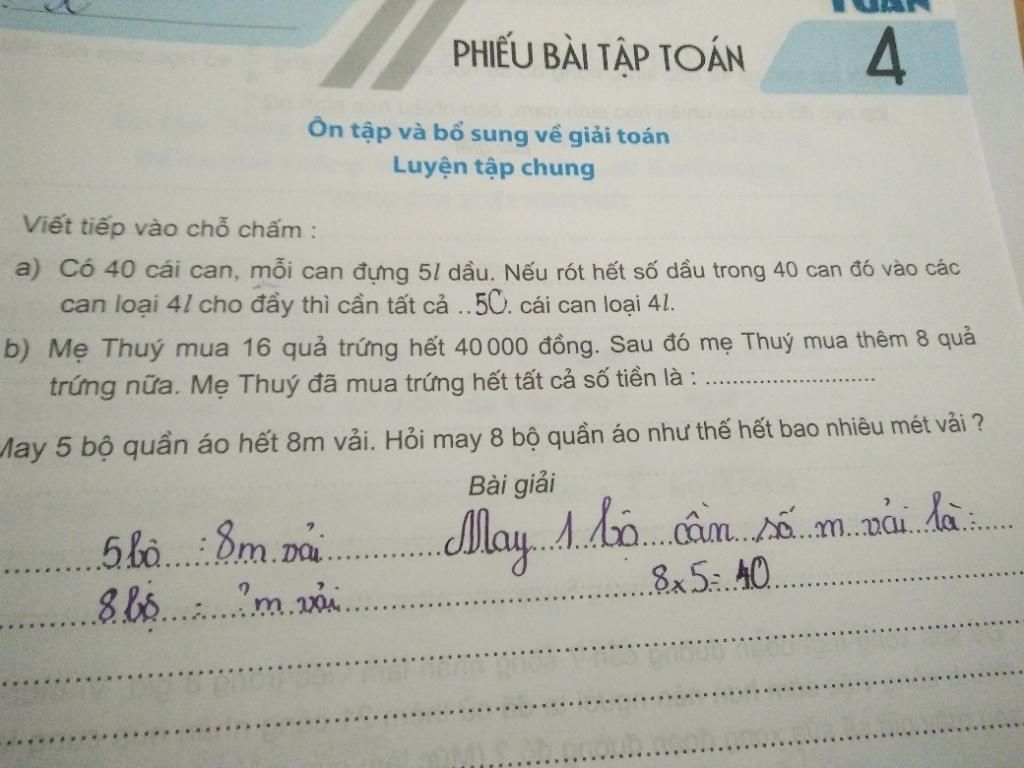 TUẦN
PHIẾU BÀI TẬP TOÁN
4
Ôn tập và bổ sung về giải toán
Luyện tập chung
Viết tiếp vào chỗ chấm :
a) Có 40 cái can, mỗi can đựng 5l dầu. Nếu rót hết số dầu trong 40 can đó vào các
can loại 4l cho đầy thì cần tất cả ..50. cái can loại 4l.
b) Mẹ Thuý mua 16 quả trứng hết 40 000 đồng. Sau đó mẹ Thuý mua thêm 8 quả
trứng nữa. Mẹ Thuý đã mua trứng hết tất cả số tiền là : ...........................
May 5 bộ quần áo hết 8m vải. Hỏi may 8 bộ quần áo như thế hết bao nhiêu mét vải ?
Bài giải
5 bộ : 8m vải May 1 bộ cần số m vải là :
8 bộ : ? m vải 8 x 5 = 40